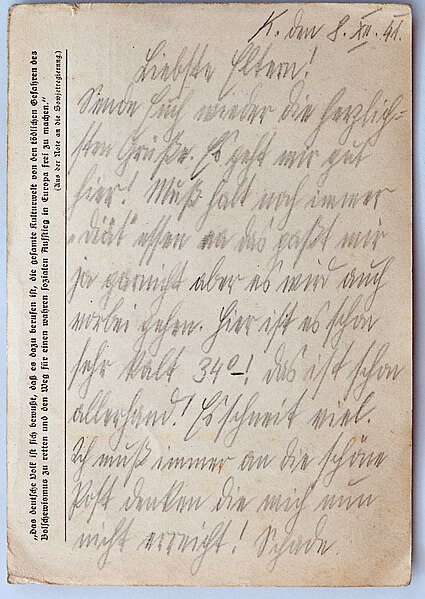 K. den 8. XII. 41.
Liebste Eltern!
Sende Euch wieder die herzlich=
sten Grüße. Es geht mir gut
hier! Muß halt noch immer
„diät“ essen na das paßt mir
ja garnicht aber es wird auch
vorbei gehen. Hier ist es schon
sehr kalt 34°–! das ist schon
allerhand! Es schneit viel.
Ich muß immer an die schöne
Post denken die mich nun
nicht erreicht! Schade.
„Das deutsche Volk ist sich bewußt, daß es dazu berufen ist, die gesamte Kulturwelt von den tödlichen Gefahren des
Bolschewismus zu retten und den Weg für einen wahren sozialen Aufstieg in Europa frei zu machen.“
(Aus der Note an die Sowjetregierung)